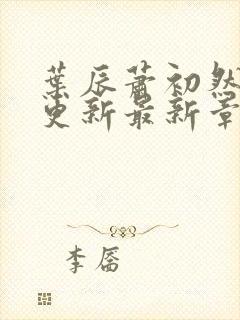 葉辰蕭初然
更新最新章
李傕